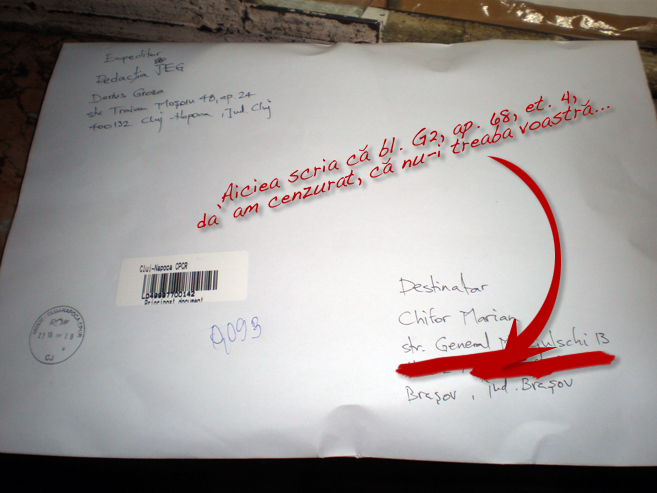 Expeditor
Redacția JEG
Darius Groza
str. Traian Mozoru 48, ap. 24
400132 Cluj-Napoca, Jud. Cluj
Aiciea scria că bl. G2, ap. 68, et. 4,
da' am cenzurat, că nu-i treaba voastră...
Cluj-Napoca CPCR
LD49897700142
Principal document
9093
CJ
Destinatar
Chifor Marian
str. General 13
Brașov, jud. Brașov